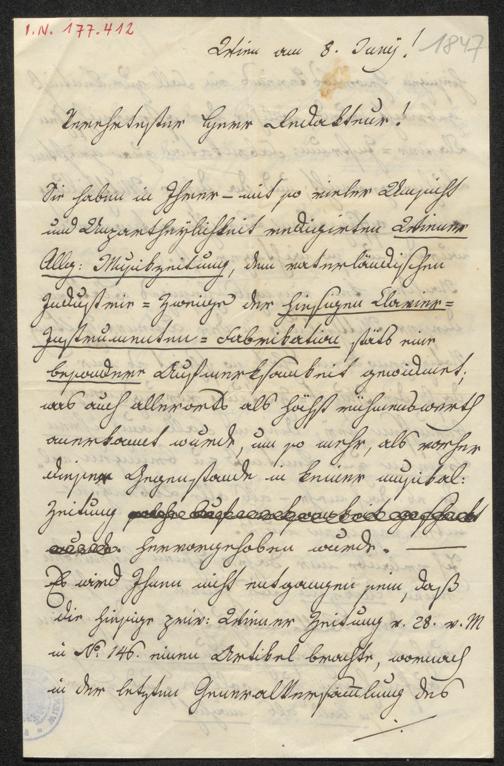 I.N. 177.412
Wien am 8. Juny! 1847
Verehrtester Herr Redakteur!
Sie haben in Ihrer – mit so vieler Umsicht
und Unpartheylichkeit redigirten Wiener
Allg: Musikzeitung, dem vaterländischen
Industrie = Zweige der hiesigen Clavier=
Instrumenten = Fabrikation stäts eine
besondere Aufmerksamkeit gewidmet;
was auch allerorts als höchst rühmenswerth
anerkannt wurde, um so mehr, als vorher
diesem Gegenstande in keiner musikal:
Zeitung
hervorgehoben wurde. —
Es wird Ihnen nicht entgangen sein, daß
die hiesige priv: Wiener Zeitung v. 28. v. M
in No. 146. einen Artikel brachte, wornach
in der letzten Generalversammlung des